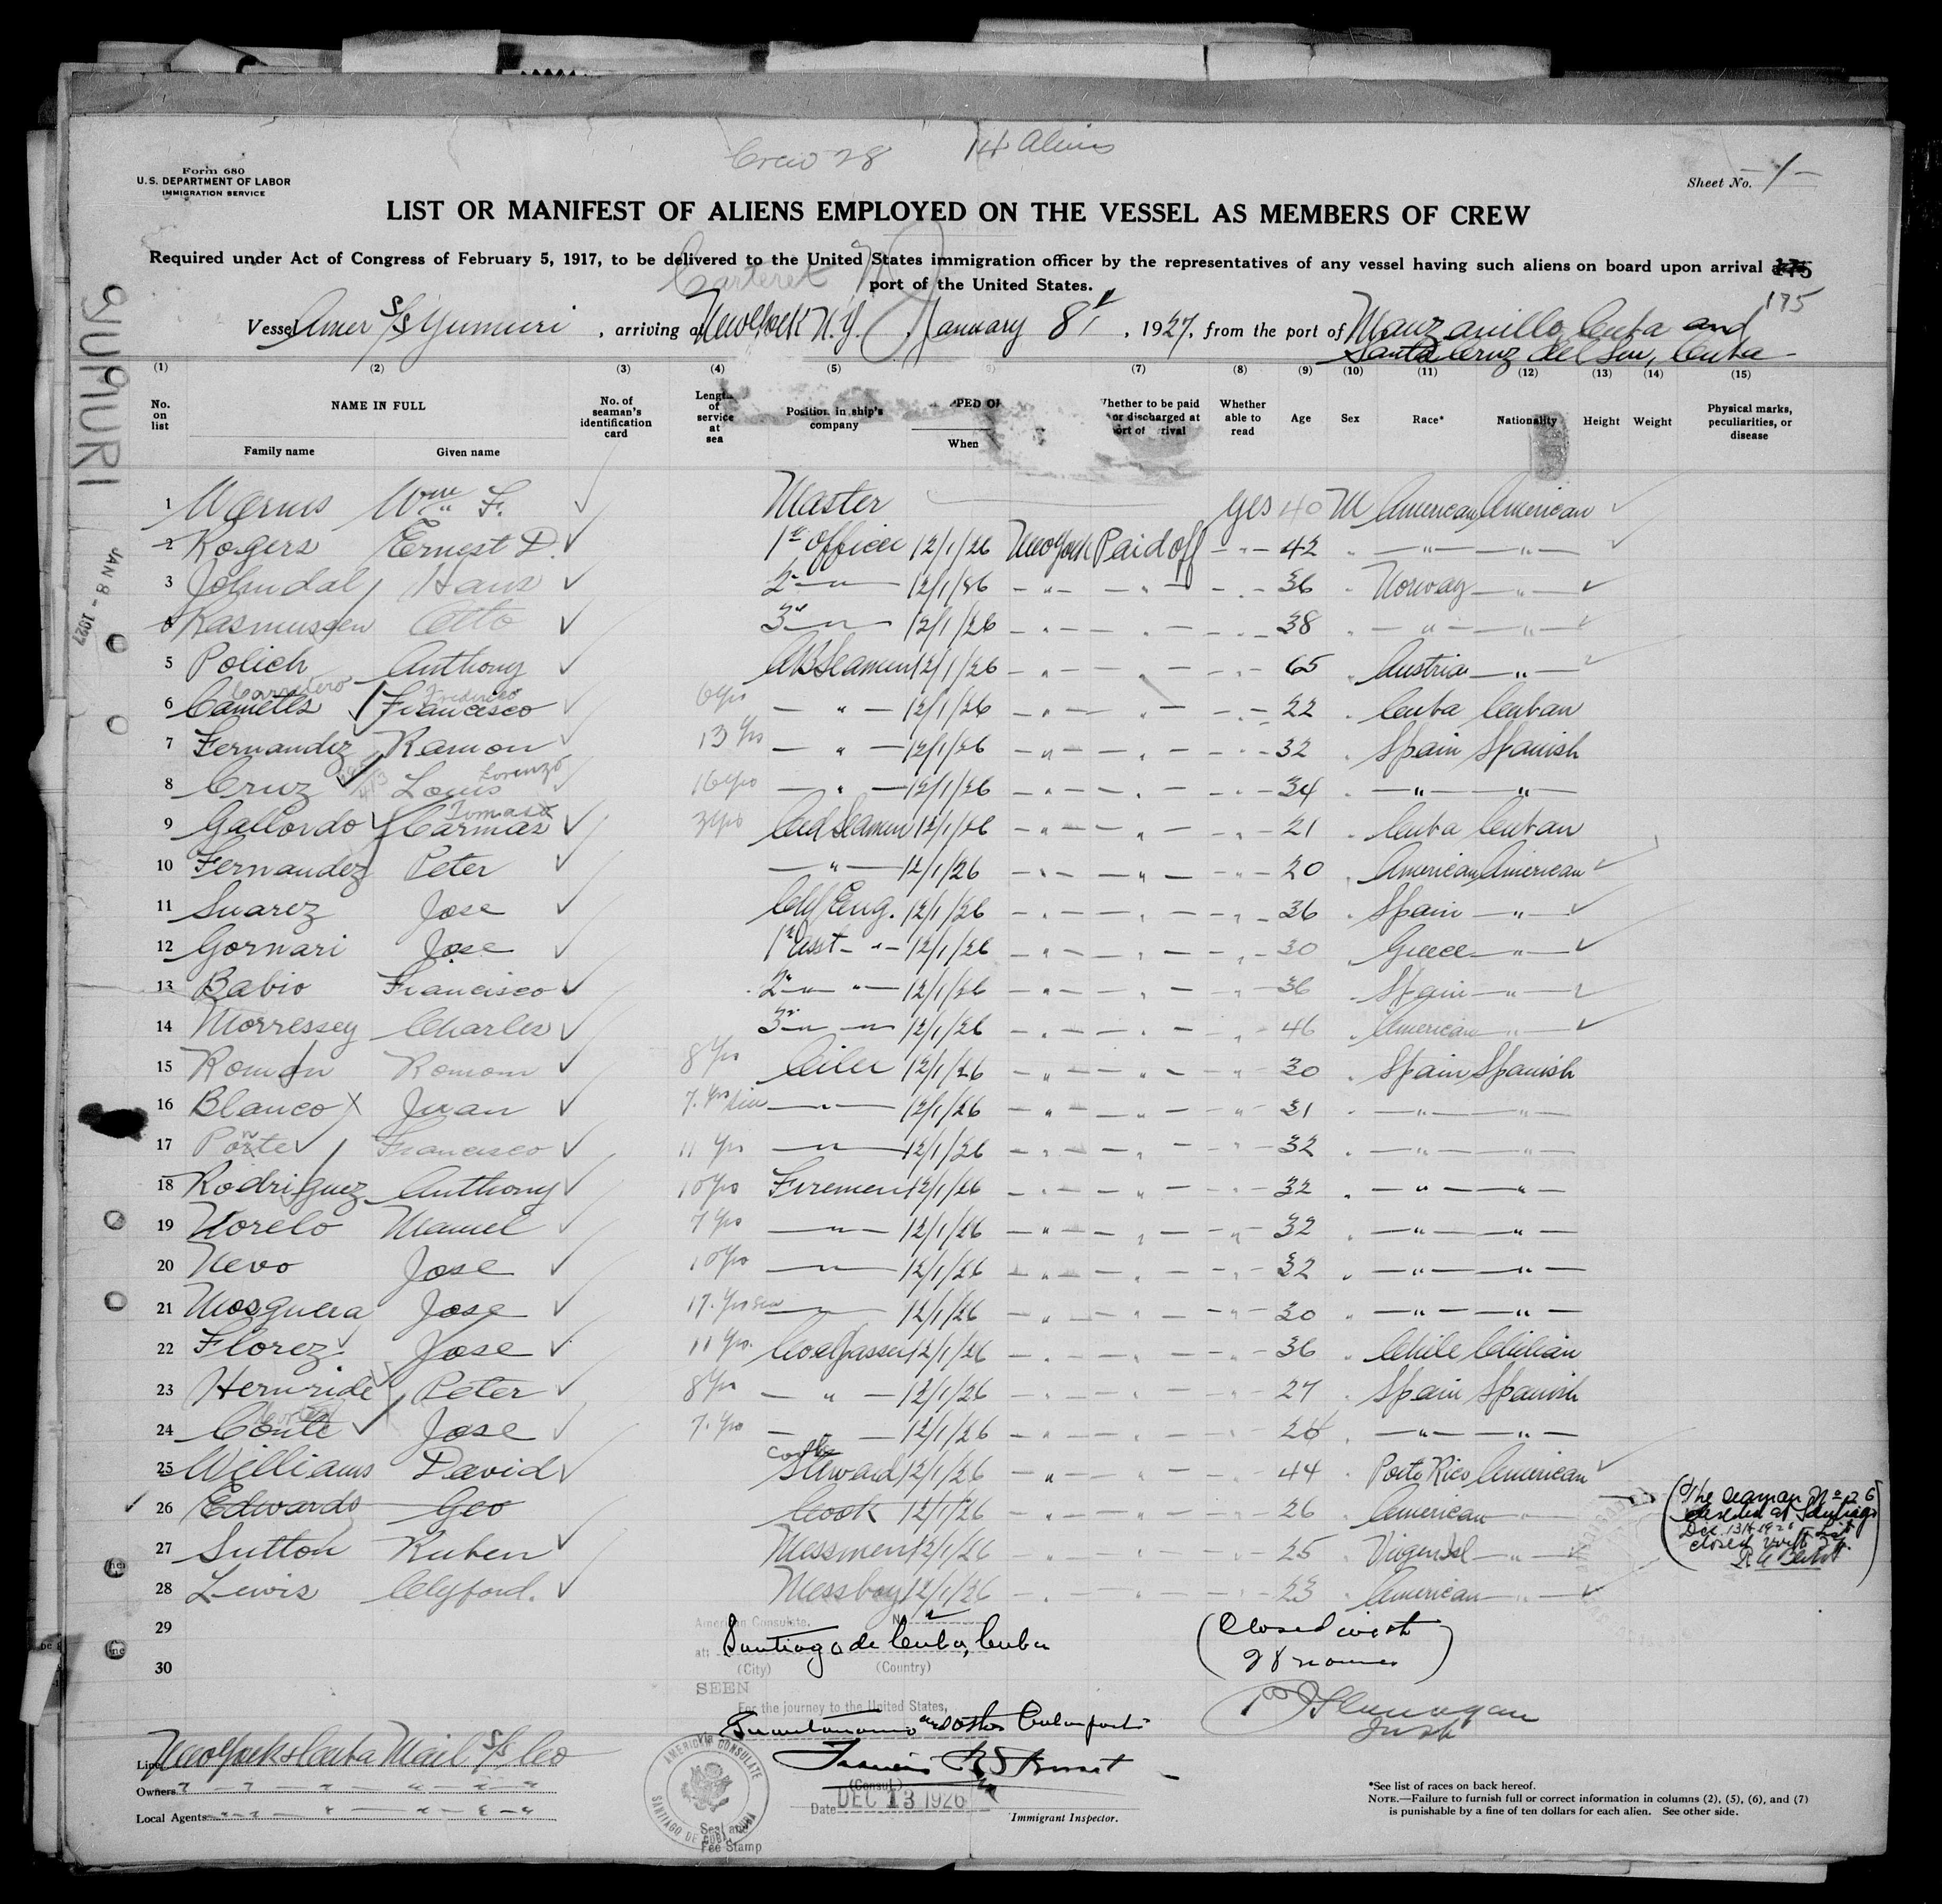 Crew 28
14 Aliens
Form 680
U.S. DEPARTMENT OF LABOR
IMMIGRATION SERVICE
Sheet No. -1-
LIST OR MANIFEST OF ALIENS EMPLOYED ON THE VESSEL AS MEMBERS OF CREW
Required under Act of Congress of February 5, 1917, to be delivered to the United States immigration officer by the representatives of any vessel having such aliens on board upon arrival
port of the United States.
Carteret N J
175
Vessel Amer S/S Yumuri, arriving at New York N.Y. January 8", 1927, from the port of Manzanillo Cuba and
Santa Cruz del Sur, Cuba
YUMURI
JAN 8 - 1927
(1) (2) (3) (4) (5) (7) (8) (9) (10) (11) (12) (13) (14) (15)
No. on list
NAME IN FULL
Family name Given name
No. of seaman's identification card
Length of service at sea
Position in ship's company
When
Whether able to read
Age Sex Race* Nationality Height Weight
Physical marks, peculiarities, or disease
1 Warms Wm F. Master yes 40 M American American
2 Rogers Ernest D. 1st Officer 12/1/26 New York Paid off - " - 42 " - " - - " -
3 Johndal Hans 2 - " - 12/1/26 - " - - " - - " - 36 " Norway - " -
4 Rasmussen Otto 3 - " - 12/1/26 - " - - " - - " - 38 " - " - - " -
5 Polich Anthony AB Seamen 12/1/26 - " - - " - - " - 65 " Austria - " -
Carretero Frederico
6 Francisco 6 Yrs - " - 12/1/26 - " - - " - - " - 22 " Cuba Cuban
7 Fernandez Ramon 13 Yrs - " - 12/1/26 - " - - " - - " - 32 " Spain Spanish
Lorenzo
8 Cruz Louis 16 Yrs - " - 12/1/26 - " - - " - - " - 34 " - " - - " -
Tomaso
9 Gallordo Carmas 3 Yrs Ord Seamen 12/1/26 - " - - " - - " - 21 " Cuba Cuban
10 Fernandez Peter - " - 12/1/26 - " - - " - - " - 20 " American American
11 Suarez Jose Chf Eng. 12/1/26 - " - - " - - " - 36 " Spain - " -
12 Gornari Jose 1st Asst - " - 12/1/26 - " - - " - - " - 30 " Greece - " -
13 Babio Francisco 2 - " - - " - 12/1/26 - " - - " - - " - 36 " Spain - " -
14 Morressey Charles 3 - " - - " - 12/1/26 - " - - " - - " - 46 " American - " -
15 Roman Romom 8 Yrs Oiler 12/1/26 - " - - " - - " - 30 " Spain Spanish
16 Blanco Juan 7. Yrs - " - 12/1/26 - " - - " - - " - 31 " - " - - " -
17 Ponte Francisco 11 Yrs - " - 12/1/26 - " - - " - - " - 32 " - " - - " -
18 Rodriguez Anthony 10 Yrs Firemen 12/1/26 - " - - " - - " - 32 " - " - - " -
19 Norelo Manuel 7 Yrs - " - 12/1/26 - " - - " - - " - 32 " - " - - " -
20 Nevo Jose 10 Yrs - " - 12/1/26 - " - - " - - " - 32 " - " - - " -
21 Mosquera Jose 17. Yrs - " - 12/1/26 - " - - " - - " - 30 " - " - - " -
22 Florez Jose 11 Yrs. Coal Passer 12/1/26 - " - - " - - " - 36 " Chile Chilian
23 Hernride Peter 8 Yrs - " - 12/1/26 - " - - " - - " - 27 " Spain Spanish
24 Conte Jose 7. Yrs - " - 12/1/26 - " - - " - - " - 26 " - " - - " -
25 Williams David Steward 12/1/26 - " - - " - - " - 44 " Porto Rico American
26 Edwards Geo Cook 12/1/26 - " - - " - - " - 26 " American - " -
27 Sutton Ruben Messmen 12/1/26 - " - - " - - " - 25 " Virgen Isl - " -
28 Lewis Clyford. Messboy 12/1/26 - " - - " - - " - 23 " American - " -
29
30
(The seaman No 26
deserted at Santiago
Dec. 13th 1926 List
closed with 27.
American Consulate,
at: Santiago de Cuba, Cuba
(City) (Country)
SEEN
For the journey to the United States,
Guantanamo and other Cuban ports
(Consul)
Date DEC 13 1926
AMERICAN CONSULATE
SANTIAGO DE CUBA, CUBA
Seal and
Fee Stamp
Immigrant Inspector.
(Closed with
28 names)
P J Flannagan
Insp.
Line New York & Cuba Mail S/S Co
Owners " " " " " "
Local Agents " " " " " "
*See list of races on back hereof.
NOTE.—Failure to furnish full or correct information in columns (2), (5), (6), and (7)
is punishable by a fine of ten dollars for each alien. See other side.